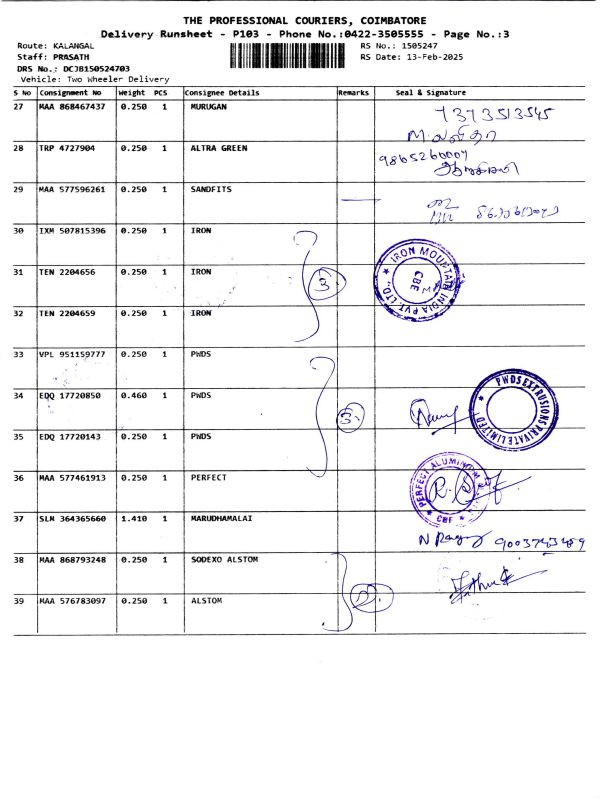 THE PROFESSIONAL COURIERS, COIMBATORE
Delivery Runsheet - P103 - Phone No.:0422-3505555 - Page No.:3
Route: KALANGAL
RS No.: 1505247
Staff: PRASATH
RS Date: 13-Feb-2025
DRS No.: DCJB150524703
Vehicle: Two Wheeler Delivery
S No Consignment No Weight PCS Consignee Details Remarks Seal & Signature
27 MAA 868467437 0.250 1 MURUGAN 7373513545
28 TRP 4727904 0.250 1 ALTRA GREEN 9865260007
29 MAA 577596261 0.250 1 SANDFITS
30 IXM 507815396 0.250 1 IRON
31 TEN 2204656 0.250 1 IRON 3
IRON MOUNTAIN INDIA PVT. LTD.,
CBE
32 TEN 2204659 0.250 1 IRON
33 VPL 951159777 0.250 1 PWDS
34 EDQ 17720850 0.460 1 PWDS 3
PWDS EXTRUSIONS PRIVATE LIMITED
35 EDQ 17720143 0.250 1 PWDS
36 MAA 577461913 0.250 1 PERFECT
PERFECT ALUMINIUM
CBE
37 SLM 364365660 1.410 1 MARUDHAMALAI 9003743489
38 MAA 868793248 0.250 1 SODEXO ALSTOM
39 MAA 576783097 0.250 1 ALSTOM 2